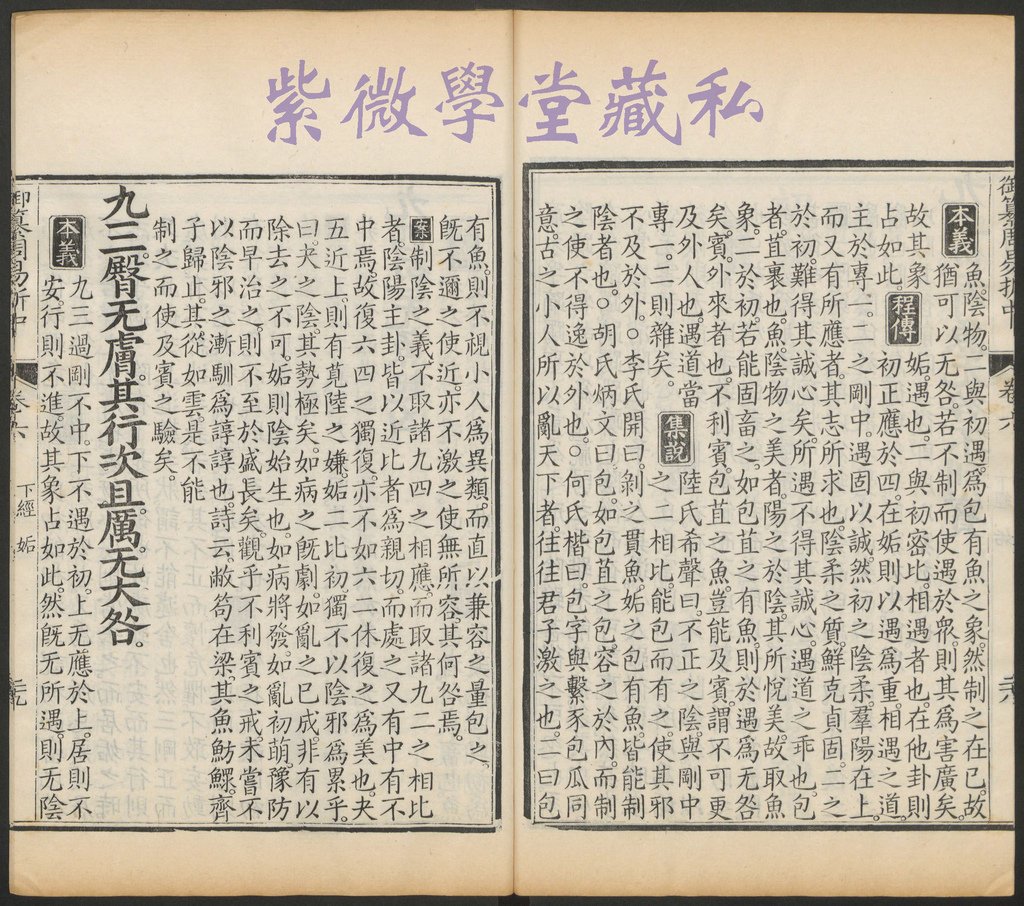 紫微學堂藏私
御纂周易折中 卷六
本義 魚。陰物。二與初遇。爲包有魚之象。然制之在己。故
猶可以无咎。若不制而使遇於衆。則其爲害廣矣。
故其象占如此。程傳 姤。遇也。二與初密比。相遇者也。在他卦則
初正應於四。在姤則以遇爲重。相遇之道。
主於專一。二之剛中。遇固以誠。然初之陰柔。羣陽在上。
而又有所應者。其志所求也。陰柔之質。鮮克貞固。二之
於初。難得其誠心矣。所遇不得其誠心。遇道之乖也。包
者。苴裹也。魚。陰物之美者。陽之於陰。其所悅美。故取魚
象。二於初。若能固畜之。如包苴之有魚。則於遇爲无咎
矣。賓。外來者也。不利賓。包苴之魚。豈能及賓。謂不可更
及外人也。遇道當專一。二則雜矣。集說 陸氏希聲曰。不正之陰。與剛中
之二相比。能包而有之。使其邪
不及於外。○李氏開曰。剝之貫魚。姤之包有魚。皆能制
陰者也。○胡氏炳文曰。包。如包苴之包。容之於內。而制
之使不得逸於外也。○何氏楷曰。包字與繫豕包瓜同
意。古之小人所以亂天下者。往往君子激之也。二曰包
有魚。則不視小人爲異類。而直以兼容之量包之。
旣不邇之使近。亦不激之使無所容。其何咎焉。
案 制陰之義。不取諸九四之相應。而取諸九二之相比
者。陰陽主卦。皆以近比者爲親切。而處之又有中有不
中焉。故復六四之獨復。亦不如六二休復之爲美也。夬
五近上。則有莧陸之嫌。姤二比初。獨不以陰邪爲累乎。
曰。夬之陰。其勢極矣。如病之旣劇。如亂之已成。非有以
除去之不可。姤則陰始生也。如病將發。如亂初萌。豫防
而早治之。則不至於盛長矣。觀乎不利賓之戒。未嘗不
以陰邪之漸馴爲諄諄也。詩云。敝笱在梁。其魚魴鰥。齊
子歸止。其從如雲。是不能
制之而使及賓之驗矣。
九三。臀无膚。其行次且。厲。无大咎。
本義 九三過剛不中。下不遇於初。上无應於上。居則不
安。行則不進。故其象占如此。然旣无所遇。則无陰
御纂周易折中 卷六 下經 姤